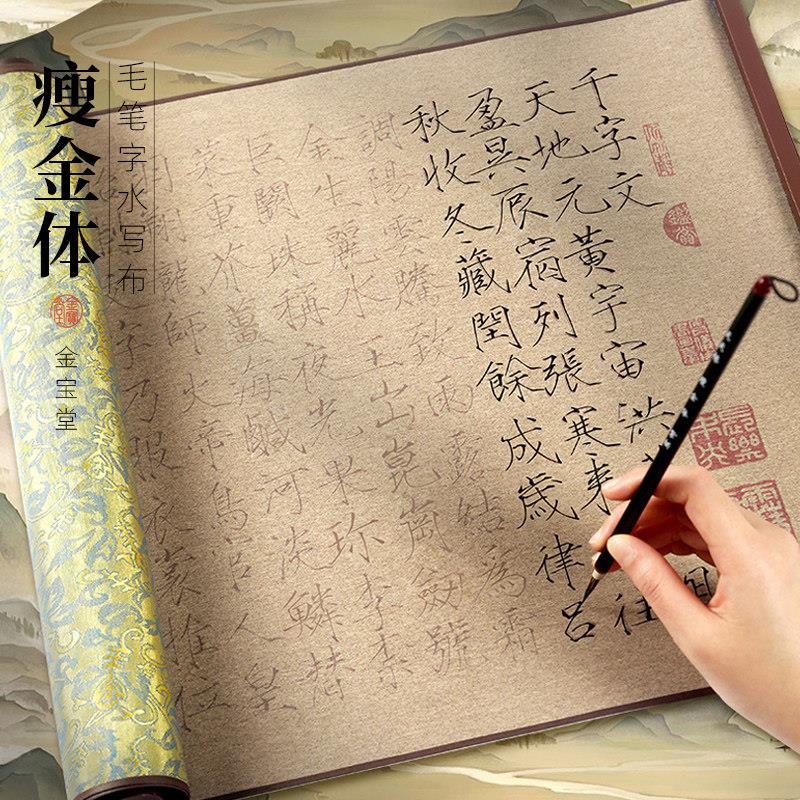 瘦金体
毛笔字水写布
金宝堂
千字文
天地元黃宇宙洪
盈昃辰宿列張寒来往
秋收冬藏閏餘成歲律呂
調陽雲騰致雨露結為霜
金生麗水玉出崑崗劍號
巨闕珠稱夜光果珍李柰
菜重芥薑海鹹河淡鱗
翔龍師火帝鳥官人皇
文字乃服衣裳推位